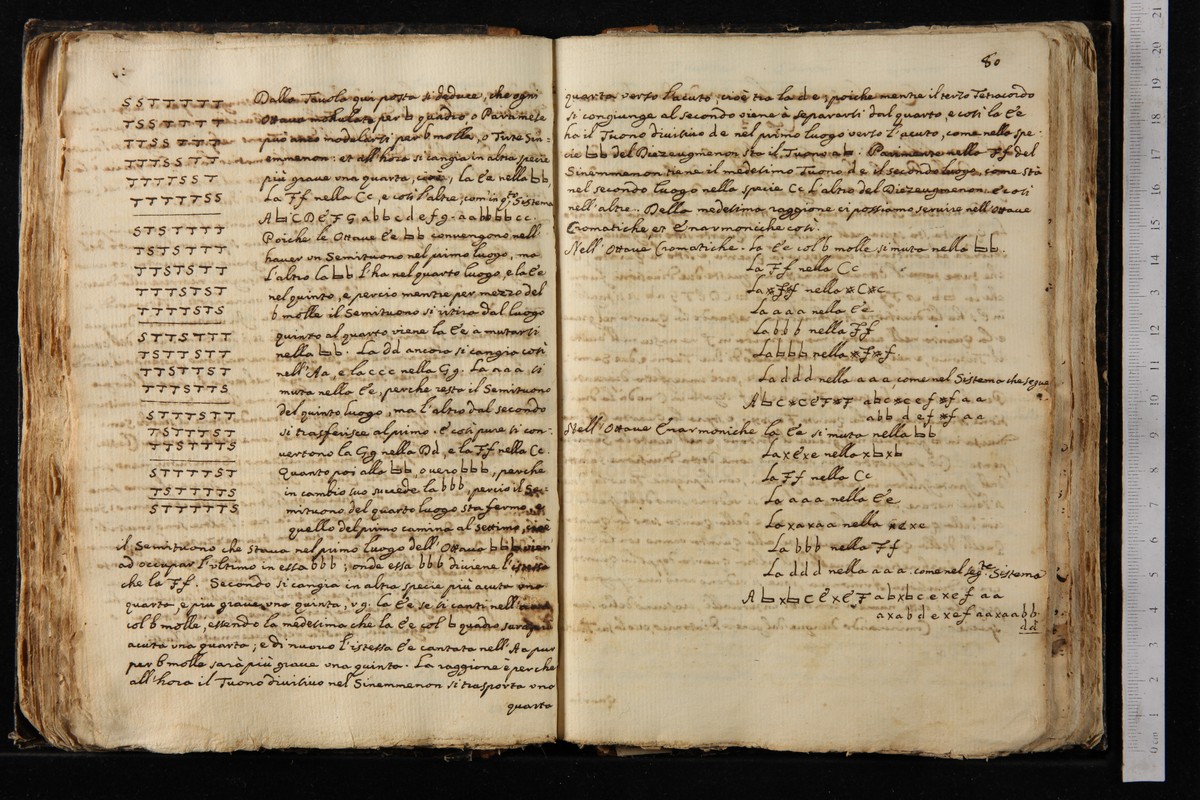 S S T T T T T
T S S T T T T
T T S S T T T
T T T S S T T
T T T T S S T
T T T T T S S
S T S T T T T
T S T S T T T
T T S T S T T
T T T S T S T
T T T T S T S
S T T S T T T
T S T T S T T
T T S T T S T
T T T S T T S
S T T T S T T
T S T T T S T
T T S T T T S
S T T T T S T
T S T T T T S
S T T T T T S
Dalla Tauola qui posta si deduce, che ogni
Ottaua modulata per b quadro, o Paramese
può anco modularsi per b molle, o Trite Sin=
emmenon: et all'hora si cangia in altra specie
più graue una quarta, cioè, la Ee nella bb,
La Ff nella Cc, e così l'altre, com'in q.to Sistema
A b C D E F G a b b c d e f g - aa bb bb cc.
Poiche le Ottaue Ee bb conuengono nell'
hauer un Semituono nel primo luogo, ma
l'altro la bb l'ha nel quarto luogo, e la Ee
nel quinto, e percio mentre per mezzo del
b molle il Semituono si ritira dal luogo
quinto al quarto viene la Ee a mutarsi
nella bb. La dd ancora si cangia così
nell'Aa, e la ccc nella Gg. La aaa si
muta nella Ee, perche resta il Semituono
del quinto luogo, ma l'altro dal secondo
si trasferisce al primo. E così pure si con:
uertono la Gg nella Dd, e la Ff nella Cc.
Quanto poi alla bb, o uero bbb, perche
in cambio suo succede la bbb, percio il Se:
mituono del quarto luogo sta fermo, e
quello del primo camina al settimo, cioè
il Semituono che staua nel primo luogo dell'Ottaua bbb vien
ad occupar l'ultimo in essa bbb; onde essa bbb diuiene l'istessa
che la Ff. Secondo si cangia in altra specie più acuta una
quarta, e più graue una quinta, v.g. la Ee se si canti nell'
col b molle, essendo la medesima che la Ee col b quadro sarà più
acuta una quarta; e di nuouo l'istessa Ee cantata nell'Aa pur
per b molle sarà più graue una quinta. La raggione è perche
all'hora il Tuono diuisiuo nel Sinemmenon si trasporta una
quarta
80
quarta verso l'acuto, cioè tra la d e; poiche mentre il terzo Tetracordo
si congiunge al secondo viene à separarsi dal quarto, e così la Ee
ha il Tuono diuisiuo de nel primo luogo verso l'acuto, come nella spe:
cie bb del Diezeugmenon sta il Tuono ab. Parimente nella Ff del
Sinemmenon tiene il medesimo Tuono de il secondo luogo, come stà
nel secondo luogo nella specie Cc l'altro del Diezeugmenon. E così
nell'altre. Della medesima raggione ci possiamo seruire nell'Ottaue
Cromatiche, et Enarmoniche così.
Nell'Ottaue Cromatiche. La Ee col b molle si muta nella bb.
La Ff nella Cc
La ※F※f nella ※C※c
La aaa nella Ee
La bbb nella Ff
La bbb nella ※F※f
La ddd nella aaa come nel Sistema che segue
A b c ※c e f ※f a b c ※c e f ※f a a
a b b d e f ※f a a
Nell'Ottaue Enarmoniche la Ee si muta nella bb
La xexe nella xbxb
La Ff nella Cc
La aaa nella Ee
La xaxaa nella xexe
La bbb nella Ff
La ddd nella aaa. come nel seg.te Sistema
A b x b C E x E F a b x b c e x e f a a
a x a b d e x e f a a x a a b b
d d